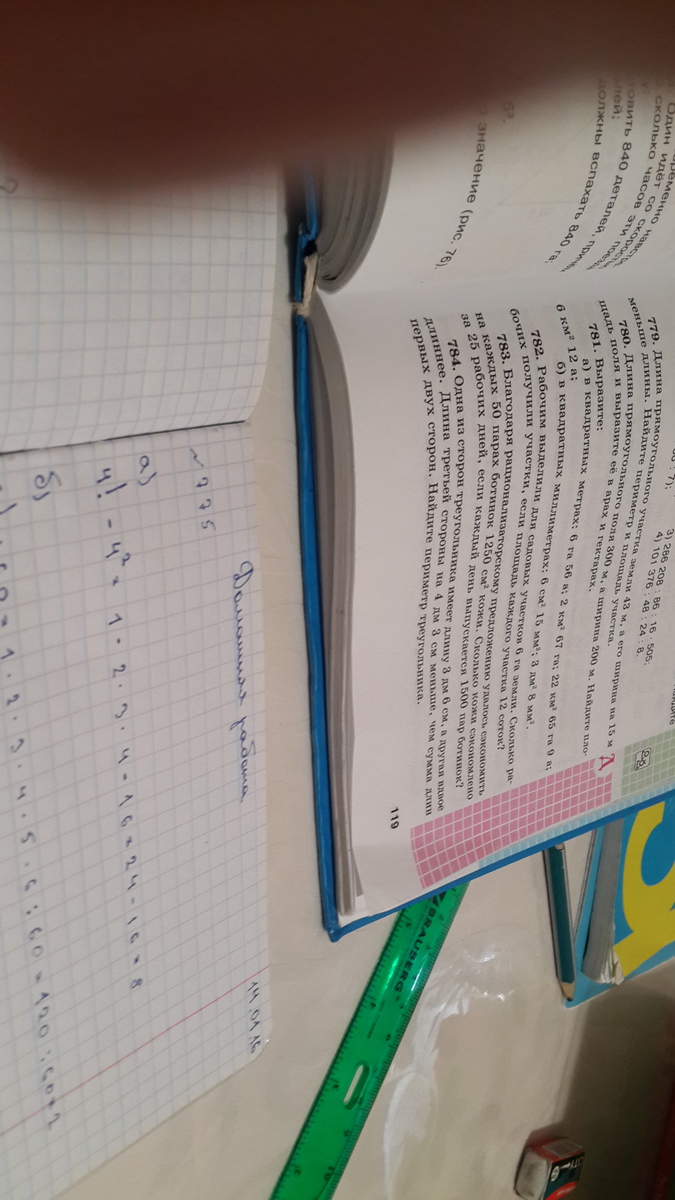 Один идёт со
сколько часов эти
840 деталей,
должны вспахать 840 га;
значение (рис. 76).
3) 286 208 : 86 · 16 · 505;
4) 101 376 : 48 : 24 : 8.
779. Длина прямоугольного участка земли 43 м, а его ширина на 15 м
меньше длины. Найдите периметр и площадь участка.
780. Длина прямоугольного поля 300 м, а ширина 200 м. Найдите пло-
щадь поля и выразите её в арах и гектарах.
781. Выразите:
а) в квадратных метрах: 6 га 56 а; 2 км² 67 га; 22 км² 65 га 9 а;
6 км² 12 а;
б) в квадратных миллиметрах: 6 см² 15 мм²; 3 дм² 8 мм².
782. Рабочим выделили для садовых участков 6 га земли. Сколько ра-
бочих получили участки, если площадь каждого участка 12 соток?
783. Благодаря рационализаторскому предложению удалось сэкономить
на каждых 50 парах ботинок 1250 см² кожи. Сколько кожи сэкономлено
за 25 рабочих дней, если каждый день выпускается 1500 пар ботинок?
784. Одна из сторон треугольника имеет длину 3 дм 6 см, а другая вдвое
длиннее. Длина третьей стороны на 4 дм 3 см меньше, чем сумма длин
первых двух сторон. Найдите периметр треугольника.
Д
119
BRAUSERG
14.01.16
Домашняя работа
~775
а)
4! - 4² = 1 · 2 · 3 · 4 - 16 = 24 - 16 = 8
б)
1 · 2 · 3 · 4 · 5 : 60 = 120 : 60 = 2